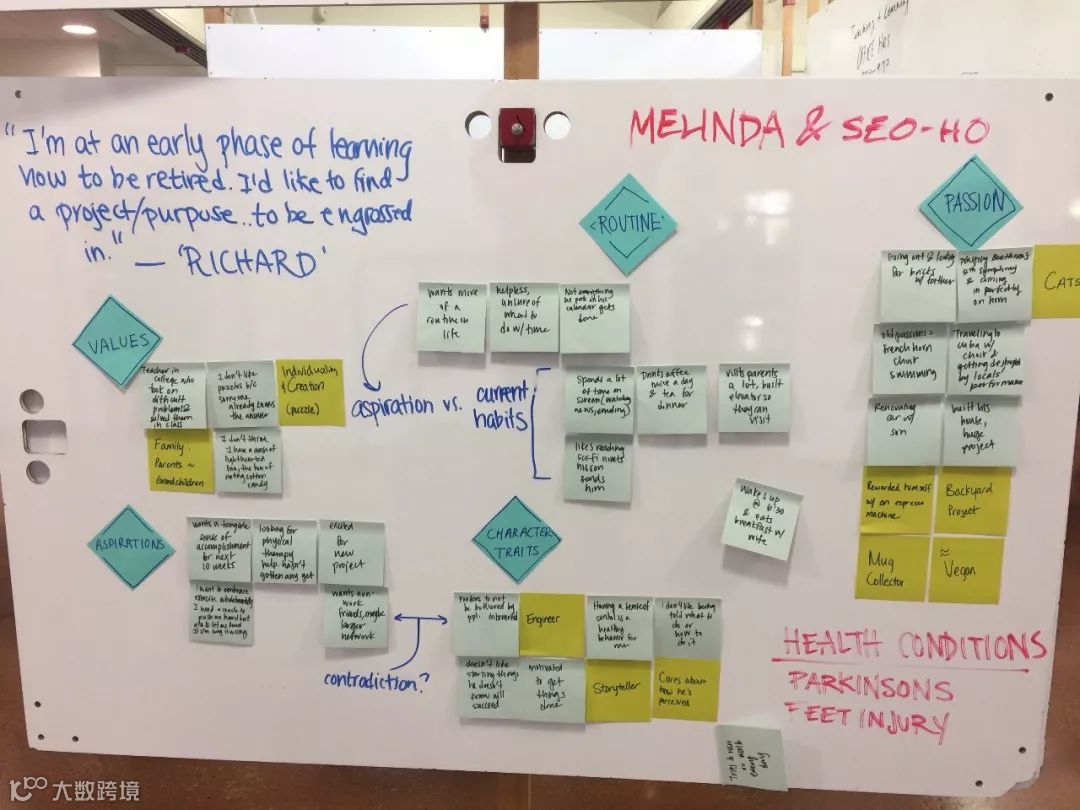 "I'm at an early phase of learning
how to be retired. I'd like to find
a project/purpose.. to be engrossed
in."
— 'RICHARD'
MELINDA & SEO-HO
ROUTINE
wants more
of a
routine in
life
helpless,
unsure of
what to
do w/ time
Not everything
he puts on his
calendar gets
done
aspiration vs. current
habits
Spends a lot
of time on
screen (watching
news, emailing)
Drinks coffee
twice a day
& tea for
dinner
visits parents
a lot, built
elevator so
they can
visit
likes reading
sci-fi novels
his son
sends
him
Wakes up
@ 6:30
& eats
breakfast w/
wife
PASSION
Going out & looking
for bricks
w/ father
playing Beethoven's
5th symphony
& coming
in perfectly
on horn
CATS
old passions =
french horn
choir
swimming
Traveling to
cuba w/
choir &
getting
by locals'
performance
Renovating
car w/
son
built his
house,
huge
project
Rewarded himself
w/ an espresso
machine
Backyard
Project
Mug
Collector
≈
Vegan
VALUES
Teacher in
college who
took on
difficult
problems &
solved them
in class
I don't like
puzzles b/c
someone
already knows
the answer
Individuality
& Creation
(puzzle)
Family.
Parents ~
Grandchildren
I don't think
I have a sense of
lighthearted
fun, the fun of
eating cotton
candy
ASPIRATIONS
wants a tangible
sense of
accomplishment
for next
10 weeks
looking for
physical
therapy
help hasn't
gotten any yet
excited
for
new
project
I want to embrace
exercise wholeheartedly
I need a coach to
push me hard but
wants non-
work
friends, maybe
larger
network
contradiction?
CHARACTER
TRAITS
Prefers to not
be bothered by
ppl. introverted
Engineer
Having a sense of
control is a
healthy
behavior for
me
I don't like being
told what to
do or
how to
do it
doesn't like
starting things
he doesn't
know will
succeed
motivated
to get
things
done
Storyteller
Cares about
how he's
perceived
Tries to run
or walk
every
day
HEALTH CONDITIONS
PARKINSONS
FEET INJURY
大数跨境